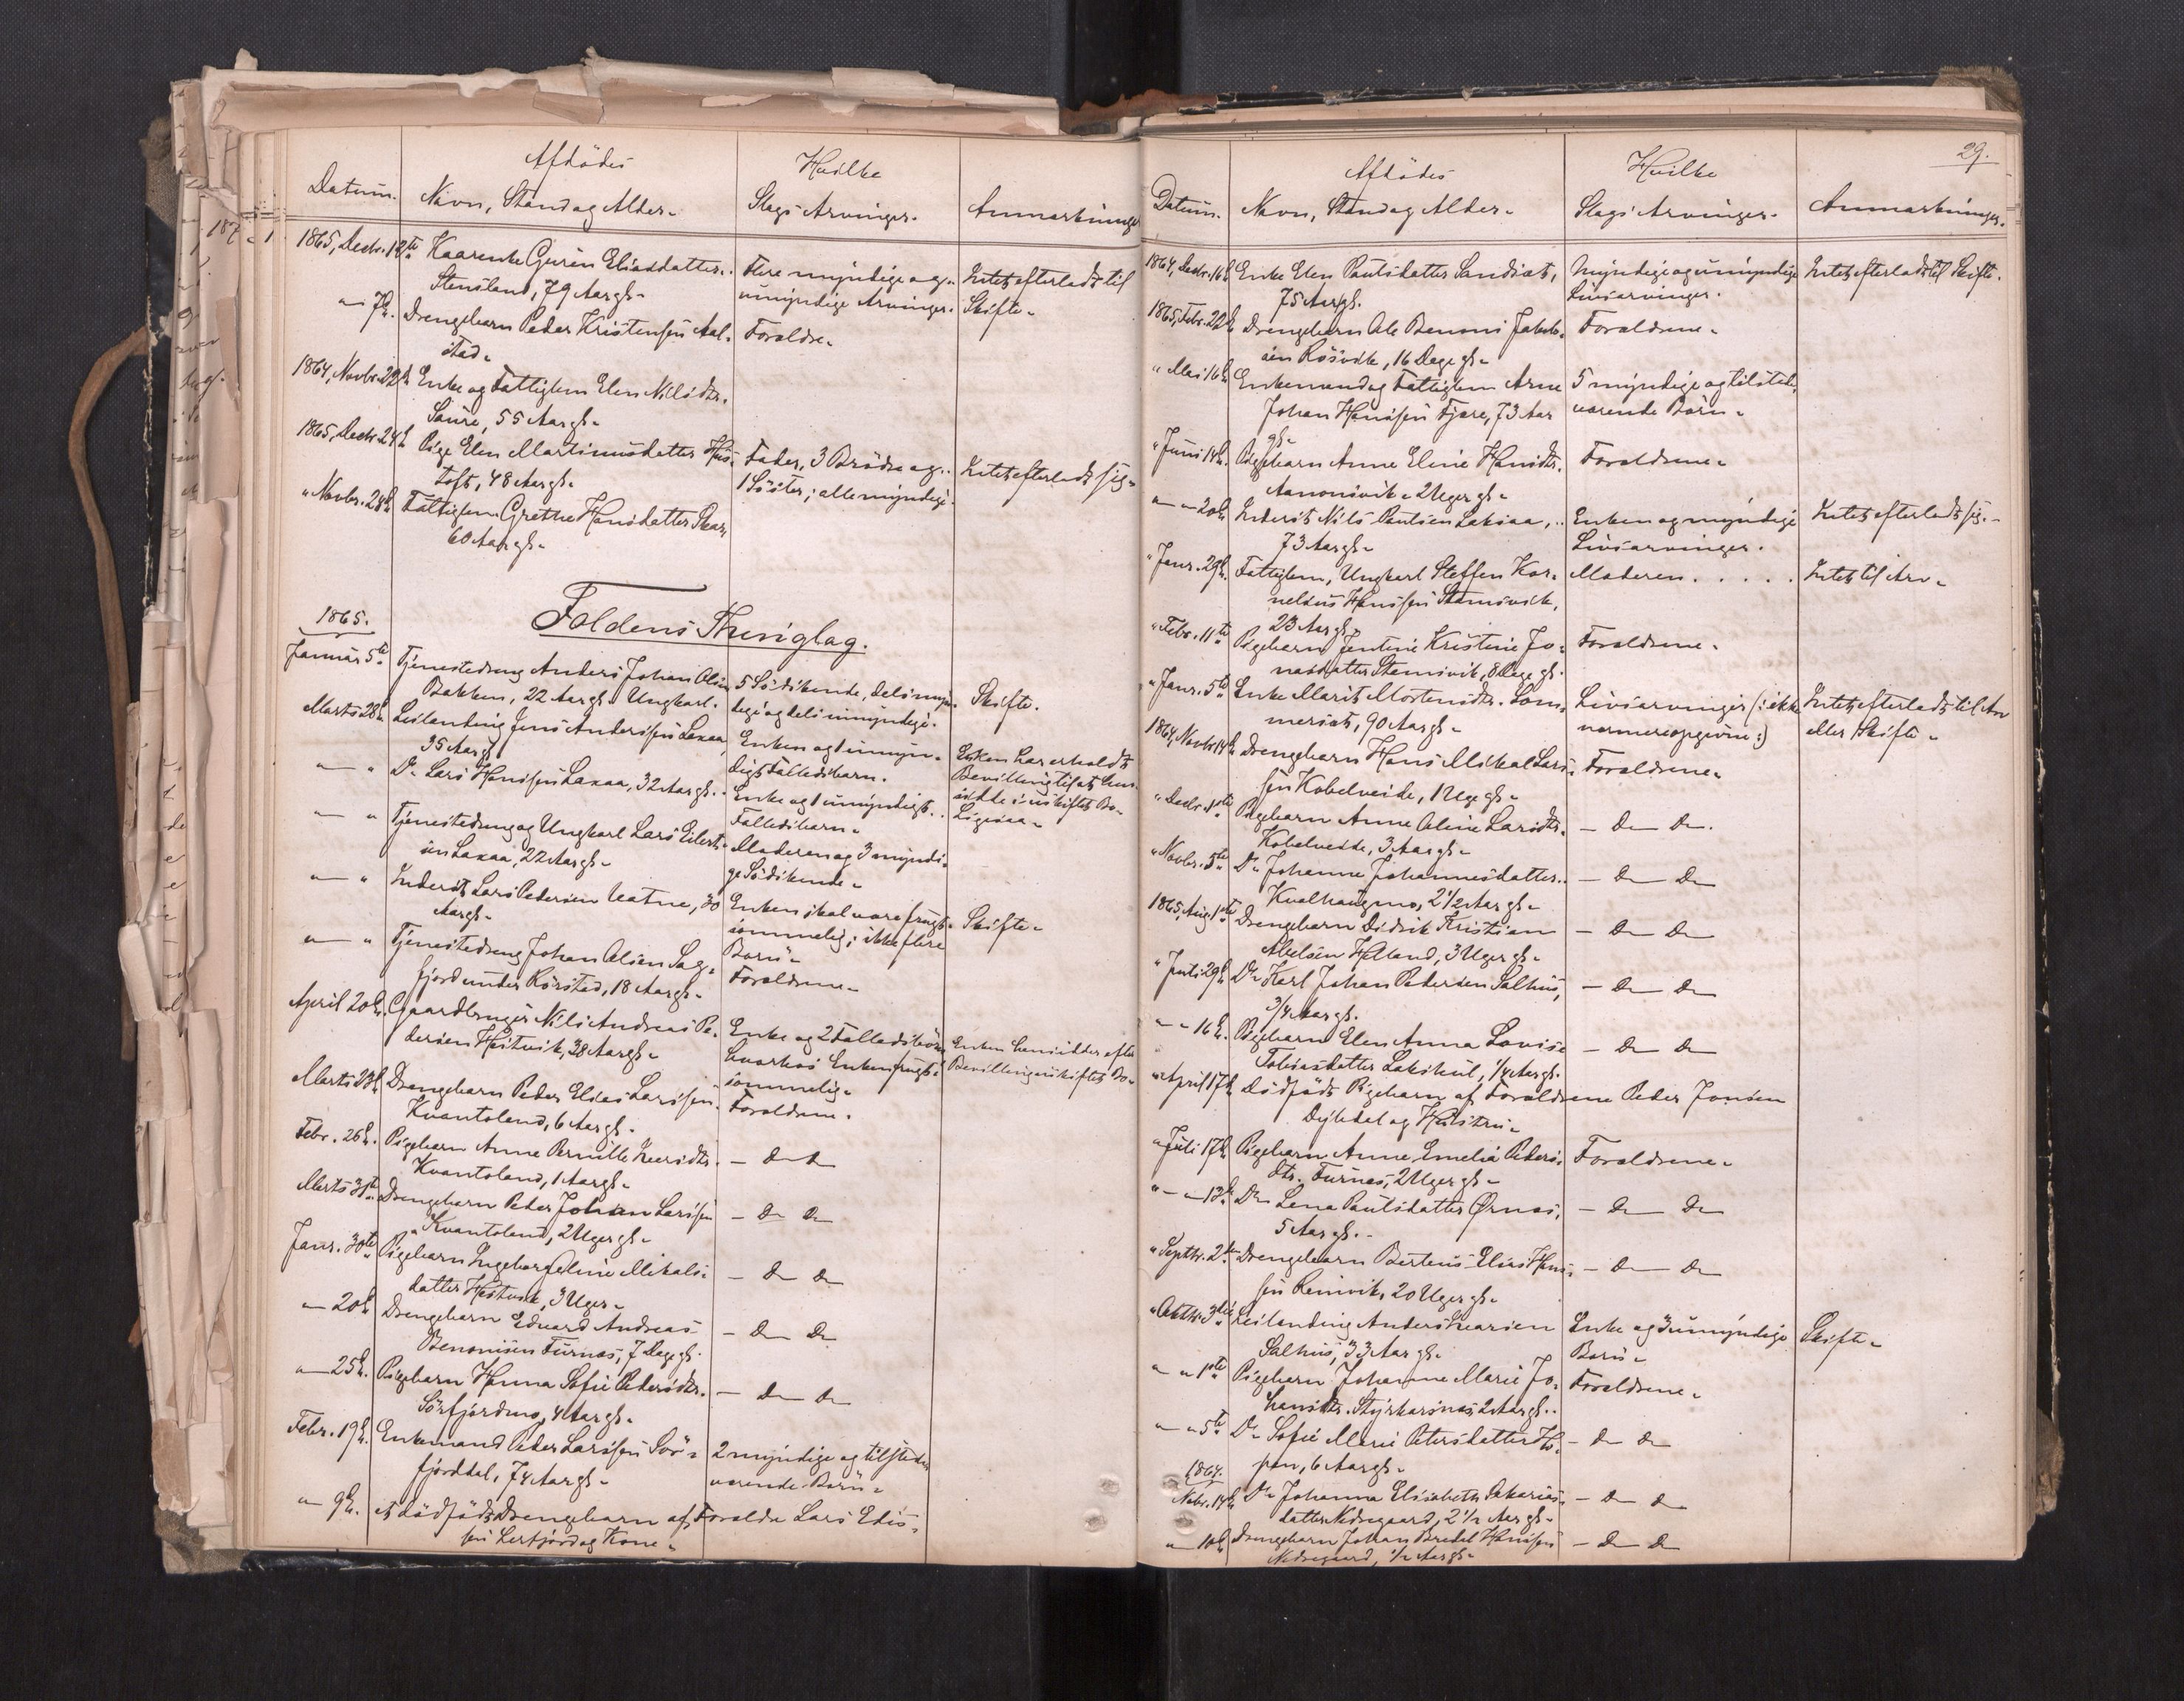 Afdödes
Hvilke
Datum.
Navn, Stand og Alder.
Slags Arvinger.
Anmærkninger
1865, Decbr. 12te
Kaarenke Guren Eliasdatter
Stensland, 79 Aar gl.
Flere myndige og
umyndige Arvinger.
Intet efterladt til
Skifte.
" 7de
Drengebarn Peder Kristensen Aal-
stad.
Forældre.
1864, Novbr. 22de
Enke og Fattiglem Elen Nilsdtr.
Saure, 55 Aar gl.
1865, Decbr. 24de
Pige Elen Martinusdatter Hus-
toft, 48 Aar gl.
Fader, 3 Brödre og
1 Söster; alle myndige.
Intet efterladt sig.
" Novbr. 28de
Fattiglem Grethe Hansdatter Skar,
60 Aar gl.
Foldens Thinglag.
1865.
Januar 5te
Tjenestedreng Anders Johan Olsen
Bakken, 22 Aar gl. Ungkarl.
5 Södskende, dels myn-
dige og dels umyndige.
Skifte.
Marts 28de
Leilending Jens Andersen Laxaa,
35 Aar gl.
Enken og 1 umyn-
digt Fællesbarn.
Enken har erholdt
Bevilling til at hen-
sidde i uskiftet Bo.
" "
Do Lars Hansen Laxaa, 32 Aar gl.
Enke og 1 umyndigt
Fællesbarn.
Ligesaa.
" "
Tjenestedreng og Ungkarl Lars Eilert-
sen Laxaa, 22 Aar gl.
Moderen og 3 myndi-
ge Södskende.
" "
Inderst Lars Pedersen Vatne, 30
Aar gl.
Enken skal være frugt-
sommelig; ikke flere
Börn.
Skifte.
" "
Tjenestedreng Johan Olsen Sag-
fjord under Rörstad, 18 Aar gl.
Forældrene.
April 20de
Gaardbruger Nils Andreas Pe-
dersen Hestvik, 38 Aar gl.
Enke og 2 Fællesbörn
hvorhos Enken frugt-
sommelig.
Enken hensidder efter
Bevilling i uskiftet Bo.
Marts 23de
Drengebarn Peder Elias Larssen
Kvantoland, 6 Aar gl.
Forældrene.
Febr. 26de
Pigebarn Anne Pernille Iversdtr.
Kvantoland, 1 Aar gl.
— Do Do
Marts 31te
Drengebarn Peder Johan Larssen
Kvantoland, 2 Uger gl.
— Do Do
Janr. 30te
Pigebarn Ingeborg Aline Mikals-
datter Hestvik, 3 Uger.
— Do Do
" 20de
Drengebarn Edvard Andreas
Benonisen Furnæs, 7 Dage gl.
— Do Do
" 25de
Pigebarn Hanna Sofie Pedersdtr.
Sörfjordmo, 4 Aar gl.
— Do Do
Febr. 19de
Enkemand Peder Larssen Sör-
fjorddal, 74 Aar gl.
2 myndige og tilstede-
værende Börn.
" 9de
et dödfödt Drengebarn af Forældre Lars Edis-
sen Lerfjord og Kone.
29.
Afdödes
Hvilke
Datum.
Navn, Stand og Alder.
Slags Arvinger.
Anmærkninger.
1864, Decbr. 16de
Enke Elen Paulsdatter Sandset,
75 Aar gl.
Myndige og umyndige
Livsarvinger.
Intet efterladt til Skifte.
1865, Febr. 22de
Drengebarn Ole Benoni Jakob-
sen Rösvik, 16 Dage gl.
Forældrene.
" Mai 16de
Enkemand og Fattiglem Arne
Johan Hanssen Fjære, 73 Aar
gl.
5 myndige og tilstede-
værende Börn.
" Juni 14de
Pigebarn Anne Eline Hansdtr.
Aanonsvik, 2 Uger gl.
Forældrene.
" " 20de
Inderst Nils Paulsen Laksaa,
73 Aar gl.
Enken og myndige
Livsarvinger.
Intet efterladt sig.
" Janr. 29de
Fattiglem, Ungkarl Steffen Kor-
nelius Hanssen Stamsvik,
23 Aar gl.
Moderen . . . . .
Intet til Arv.
" Febr. 11te
Pigebarn Jentine Kristine Jo-
nasdatter Stemsvik, 8 Dage gl.
Forældrene.
" Janr. 5te
Enke Marit Mortensdtr. Som-
mersæt, 90 Aar gl.
Livsarvinger (: ikke
nærmere opgivne :)
Intet efterladt til Arv
eller Skifte.
1864, Novbr. 14de
Drengebarn Hans Mikal Lars-
sen Kobelveide, 1 Uge gl.
Forældrene.
" Decbr. 1ste
Pigebarn Anne Oline Larsdtr.
Kobelveide, 3 Aar gl.
— Do Do.
" Novbr. 5te
Do Johanne Johannesdatter
Kvalhaugmo, 2 1/2 Aar gl.
— Do Do
1865, Aug. 1ste
Drengebarn Didrik Kristian
Abelsen Helland, 3 Uger gl.
— Do Do
" Juli 29de
Do Karl Johan Pedersen Salhus,
3/4 Aar gl.
— Do Do
" " 16de
Pigebarn Elen Anna Lovise
Tobiasdatter Lakshul, 1/4 Aar gl.
— Do Do
" April 17de
Dödfödt Pigebarn af Forældrene Peder Jonsen
Dybdal og Hustru.
" Juli 17de
Pigebarn Anne Emelie Peders-
dtr. Furnæs, 2 Uger gl.
Forældrene.
" " 13de
Do Lena Paulsdatter Ørnæs,
5 Aar gl.
— Do Do
" Septbr. 2den
Drengebarn Berteus Elias Hans-
sen Leinvik, 20 Uger gl.
— Do Do
" Oktbr. 3die
Leilending Anders Ivarsen
Salhus, 33 Aar gl.
Enke og 3 umyndige
Börn.
Skifte.
" " 1ste
Pigebarn Johanne Marie Jo-
hansdtr. Styrkesnæs, 2 Aar gl.
Forældrene.
" " 5te
Do Sofie Marie Petersdatter
pen, 6 Aar gl.
— Do Do
1864.
Novbr. 14de
Do Johanna Elisabeth Sakarias-
datter Nedregaard, 2 1/2 Aar gl.
— Do Do
" 10de
Drengebarn Johan Bredal Hanssen
Nedregaard, 1/2 Aar gl.
— Do Do